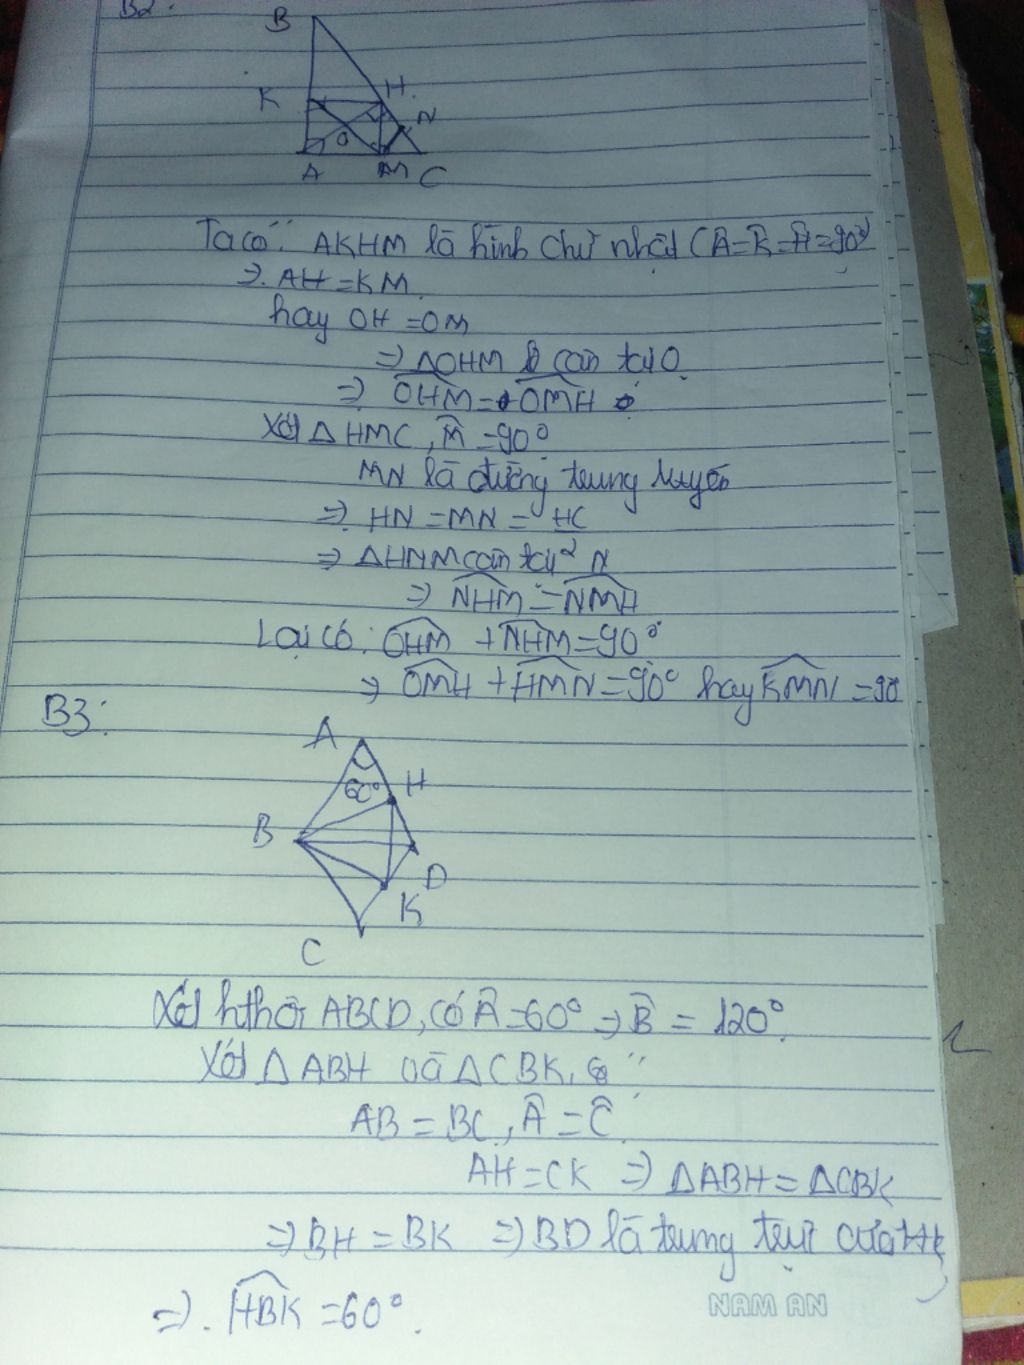 B2:
B
K
H
N
O
A
M
C
Ta có: AKHM là hình chữ nhật (Â=K̂=Ĥ=90°)
⇒ AH=KM
hay OH=OM
⇒ ΔOHM cân tại O
⇒ OHM = OMH
Xét ΔHMC, M̂=90°
MN là đường trung tuyến
⇒ HN=MN= HC
2
⇒ ΔHNM cân tại N
⇒ NHM = NMH
Lại có: OHM + NHM = 90°
⇒ OMH + HMN = 90° hay KMN = 90
B3:
A
60°
H
B
D
K
C
Xét hthoi ABCD, có Â=60° ⇒ B̂ = 120°
Xét ΔABH và ΔCBK, có:
AB = BC, Â = Ĉ
AH=CK ⇒ ΔABH = ΔCBK
⇒ BH = BK ⇒ BD là trung trực của HK
⇒ HBK = 60°.
NAM AN